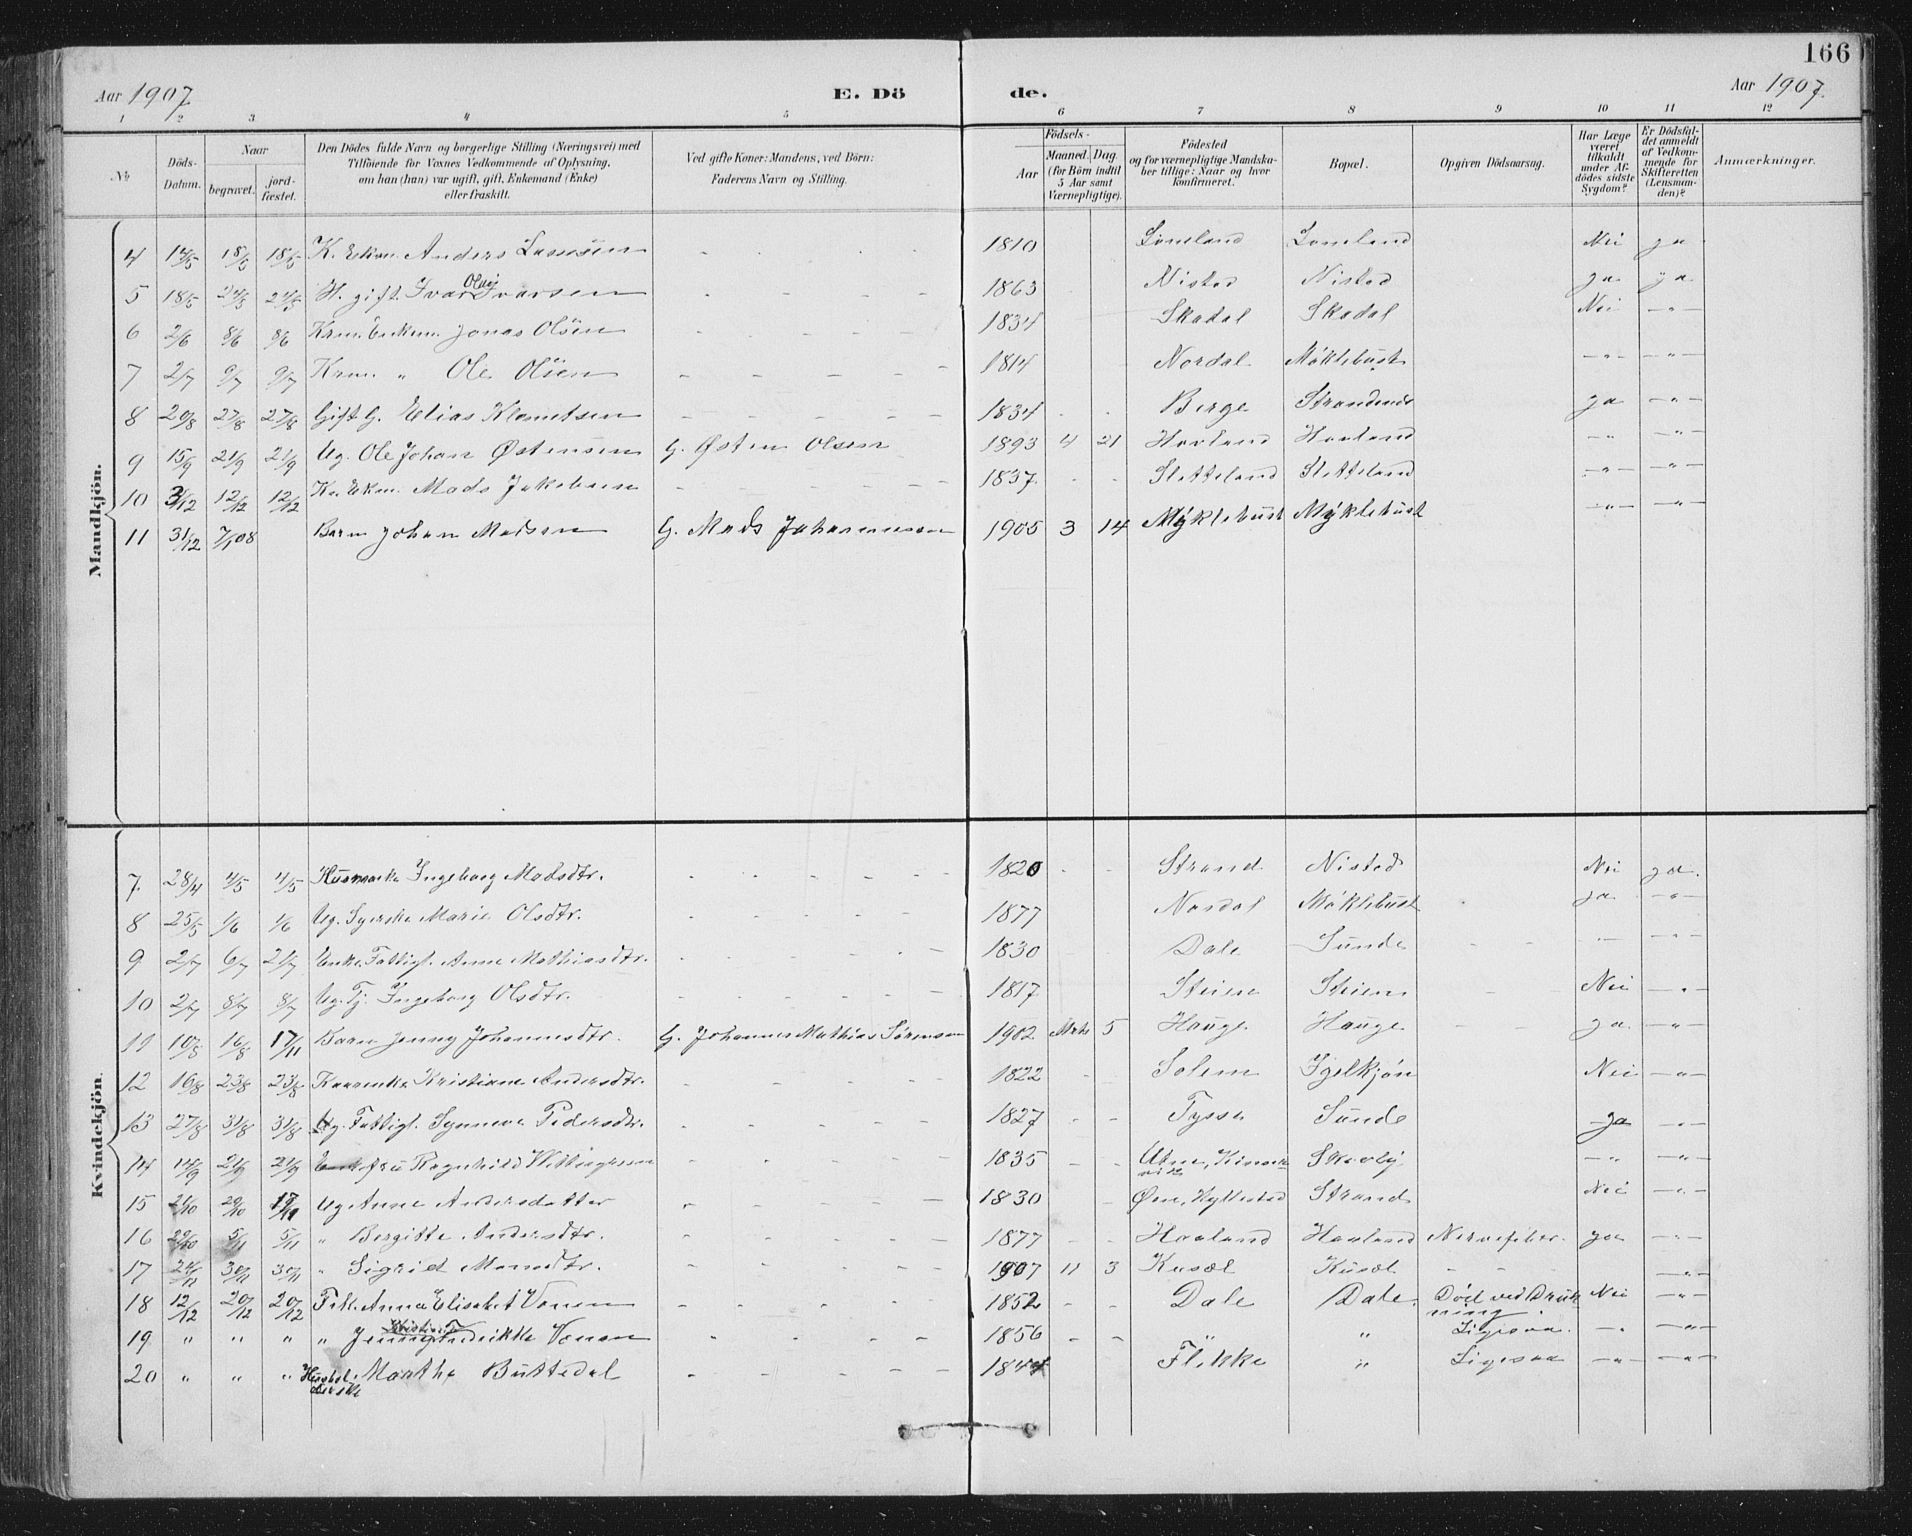 166
Aar 1907. E. Dö de. Aar 1907.
1 2 3 4 5 6 7 8 9 10 11 12
No. Döds-Datum. Naar begravet. jordfæstet. Den Dödes fulde Navn og borgerlige Stilling (Næringsvei) med Tilföiende for Voxnes Vedkommende af Oplysning, om han (hun) var ugift, gift, Enkemand (Enke) eller fraskilt. Ved gifte Koner: Mandens, ved Börn: Faderens Navn og Stilling. Födsels- Aar Maaned. Dag. (for Börn indtil 5 Aar samt Værnepligtige). Födested og for værnepligtige Mandskaber tillige: Naar og hvor konfirmeret. Bopæl. Opgiven Dödsaarsag. Har Læge været tilkaldt under Afdödes sidste Sygdom? Er Dödsfaldet anmeldt af Vedkommende for Skifteretten (Lensmanden)? Anmærkninger.
Mandkjön.
4 14/5 18/5 18/5 K. Ekm. Anders Lassesen - - - - 1810 Lomeland Lomeland Nei ja
5 18/5 24/5 24/5 H. gift. Ivar Olaj Ivarsen - - - - 1863 Nistad Nistad ja ja
6 2/6 8/6 8/6 Krm. Enkem. Jonas Olsen - - - - 1834 Skadal Skadal Nei -"-
7 2/7 9/7 9/7 Krm. " Ole Olsen - - - - 1814 Nordal Møklebust -"- -"-
8 20/8 27/8 27/8 Gift G. Elias Klemetsen - - - - 1834 - - Berge Strandenes ja -"-
9 15/9 21/9 21/9 Ug. Ole Johan Østensen G. Østen Olsen 1893 4 21 Havland Havland -"- -"-
10 3/12 12/12 12/12 Kr. Ekm. Mads Jakobsen - - - - 1837. - - Sletteland Sletteland -"- -"-
11 31/12 7/1 08 Barn Johan Madsen G. Mads Johannessen 1905 3 14 Myklebust Myklebust -"- -"-
Kvindekjön.
7. 28/4 4/5 4/5 Husm.enke Ingeborg Madsdtr. - - - - 1820 - - Strand Nistad Nei ja.
8 25/5 1/6 1/6 Ug. Syerske Marie Olsdtr. - - - - 1877 Nordal Møklebust ja -"-
9 2/7 6/7 21/7 Enke Fattigl. Anne Mathiasdtr. - - - - 1830 Dale Sunde - - -"- -"-
10 2/7 8/7 8/7 Ug. Tj. Ingeborg Olsdtr. - - - - 1817 Steien Steien - Nei -"-
11 10/8 16/8 17/11 Barn Jenny Johannesdtr. G. Johannes Mathias Sørensen 1902 Mrts 5 Hauge Hauge - ja -"-
12 16/8 23/8 23/8 Kaarenke Kristiane Andersdtr. - - - - 1822 - Solem Igelkjøn Nei -"-
13 27/8 31/8 31/8 Ug. Fattigl. Synneve Pedersdtr. - - - - 1827 - - Tysse Sunde ja -"-
14 14/9 21/9 21/9 Enkefru Ragnhild - - - - 1835 - - Utne, Skarby -"- -"-
15 21/10 29/10 17/11 Ug. Anne Andersdatter - - - - 1830 - Øen, Hyllestad Strand Nei -"-
16 29/10 5/11 5/11 " Bergitte Andersdtr. - - - - 1877 - - Havland Havland Nervefeber. ja -"-
17 24/11 30/11 30/11 " Sigrid Monsdtr. - - - - 1907 11 3 Kusæl Kusæl - - -"-
18 12/12 20/12 20/12 Frk. Anna Elisabet Vonen - - - - 1852 - - Dale Dale. Död ved Drukning. Nei -"-
19 " " " " Jenny Fredrikke Vonen - - - - 1856 - - " " Ligesaa. -"- -"-
20 " " " Husholderske Marthe Buttedal - - - - 1844 Flekke " Ligesaa -"- -"-